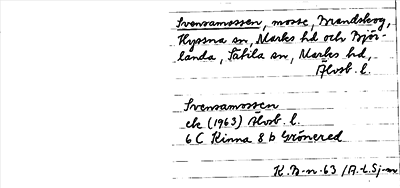 Svensamossen, mosse, Brandskog,
Hyssna sn, Marks hd och Björ-
landa, Sätila sn, Marks hd,
Älvsb. l.
Svensamossen
ek (1963) Älvsb. l.
6 C Kinna 8 b Grönered
K.B-n-63 /A.L.Sj-m